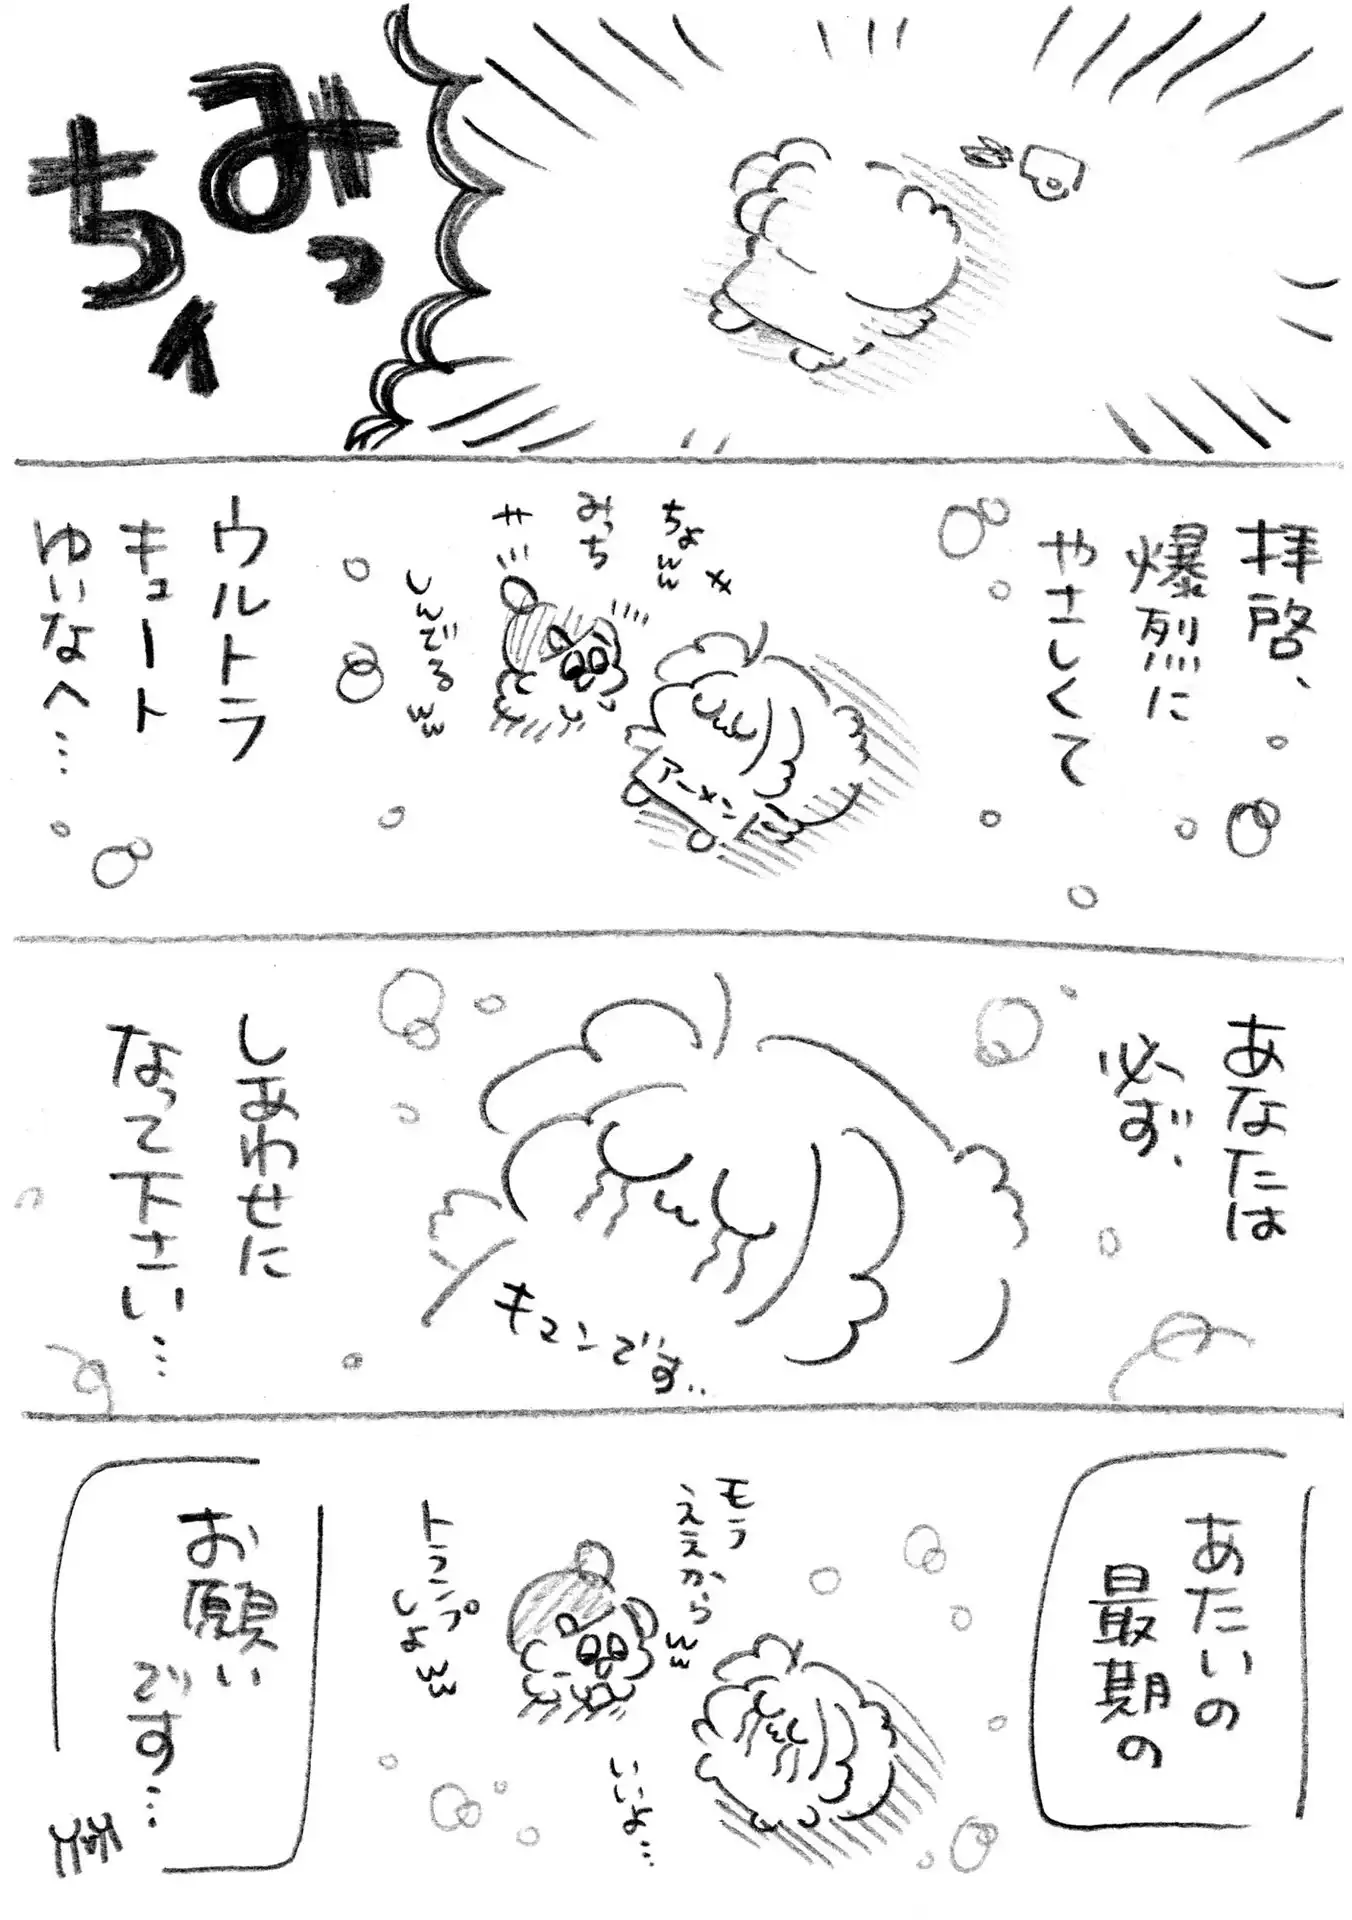 みっ
ちィ
拝啓、
爆烈に
やさしくて
ちょww
みっち
サ
しんでるww
アーメン
ウルトラ
キュート
ゆいなへ…
あなたは
必ず、
キュンです..
しあわせに
なって下さい…
あたいの
最期の
モう
ええからww
トランプ
しよww
いいよ…
お願い
です…